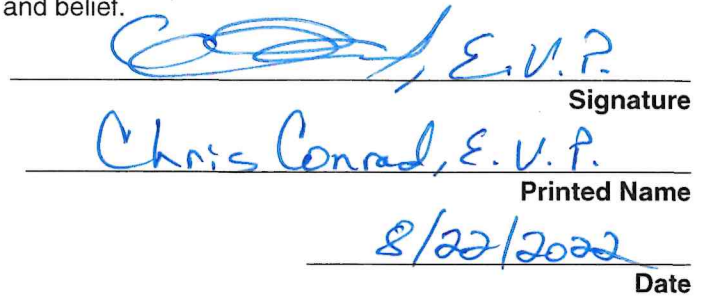 and belief.
E.V.P.
Signature
Chris Conrad, E.V.P.
Printed Name
8/22/2022
Date